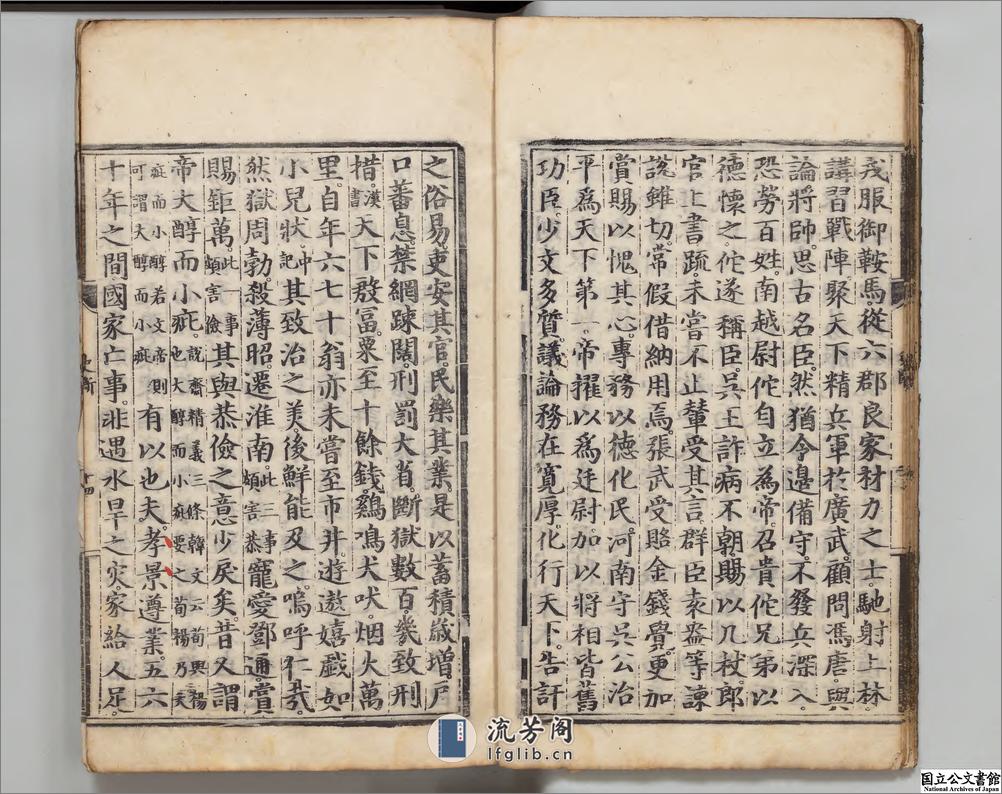 戎服御鞍馬。從六郡良家材力之士。馳射上林。
講習戰陣。聚天下精兵。軍於廣武。顧問馮唐。與
論將帥。思古名臣。然猶令邊備守。不發兵深入。
恐勞百姓。南越尉佗自立為帝。召貴佗兄弟。以
德懷之。佗遂稱臣。吳王詐病不朝。賜以几杖。郎
官上書疏。未嘗不止輦受其言。群臣袁盎等諫
說雖切。常假借納用焉。張武受賂金錢。覺。更加
賞賜。以愧其心。專務以德化民。河南守吳公治
平為天下第一。帝擢以為廷尉。加以將相皆舊
功臣。少文多質。議論務在寬厚。化行天下。告訐
之俗易。吏安其官。民樂其業。是以蓄積歲增。戶
口蕃息。禁網踈闊。刑罰大省。斷獄數百。幾致刑
措。漢書天下殷富。粟至十餘錢。鷄鳴犬吠。烟火萬
里。自年六七十翁亦未嘗至市井。遊遨嬉戲如
小兒狀。史記其致治之美。後鮮能及之。嗚呼仁哉。
然獄周勃。殺薄昭。遷淮南。此三事頗害恭寵愛鄧通。賞
賜鉅萬。此一事頗害儉其與恭儉之意少戾矣。昔人謂
帝大醇而小疵。說齋精義三條韓文云荀與楊也大醇而小疵要之荀楊乃天
疵而小醇若文帝則可謂大醇而小疵有以也夫。孝景遵業。五六
十年之間。國家亡事。非遇水旱之災。家給人足。
史斷
十四
流芳阁
lfglib.cn
国立公文書館
National Archives of Japan